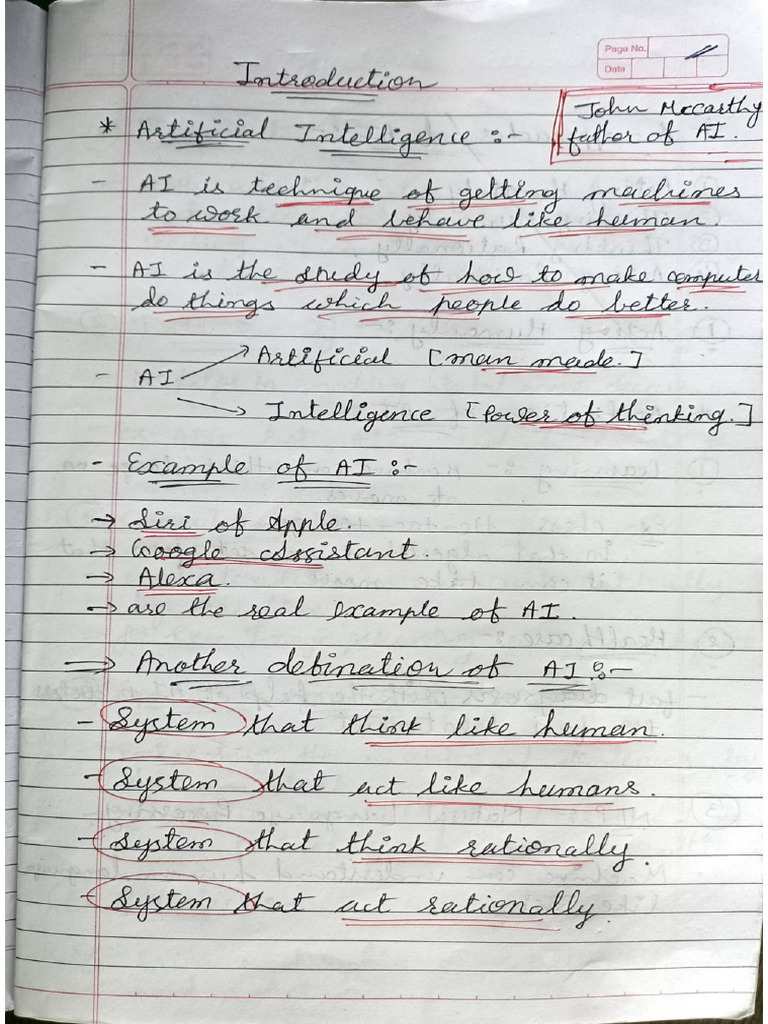 Page No.
Date
Introduction
John Mccarthy
father of AI.
* Artificial Intelligence :-
- AI is technique of getting machines
to work and behave like human.
- AI is the study of how to make computer
do things which people do better.
Artificial [man made.]
- AI
Intelligence [Power of thinking.]
- Example of AI :-
→ Siri of Apple.
→ Google Assistant.
→ Alexa.
→ are the real example of AI.
⇒ Another defination of AI :-
- System that think like human.
- System that act like humans.
- System that think rationally.
- System that act rationally.